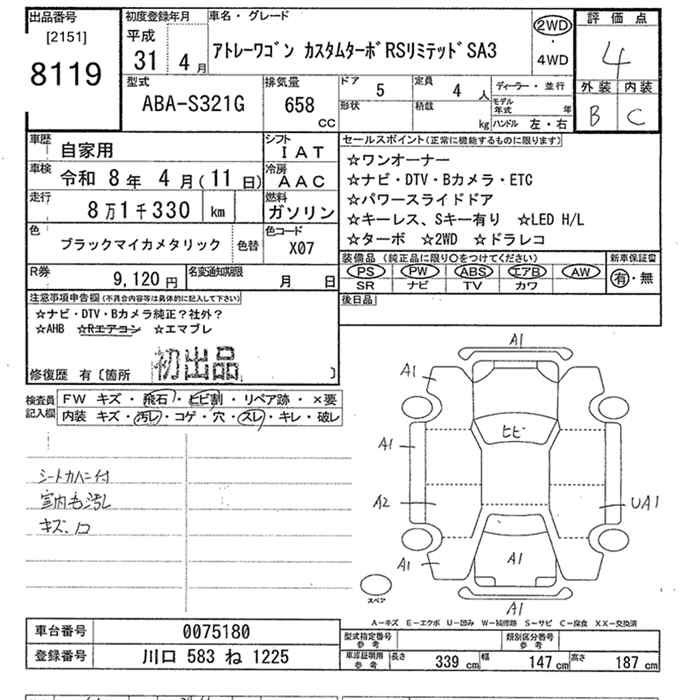 出品番号
[2151]
8119
初度登録年月
平成
31 4 月
車名・グレード
アトレーワゴン カスタムターボRSリミテッドSA3
2WD
・
4WD
評価点
4
外装 内装
B C
型式
ABA-S321G
排気量
658
cc
ドア
5
定員
4 人
形状
積載
kg
ディーラー・並行
モデル年式 年
ハンドル 左・右
車歴
自家用
シフト
IAT
車検
令和 8年 4月(11日)
冷房
AAC
走行
8万1千330 km
燃料
ガソリン
色
ブラックマイカメタリック
色替
色コード
X07
R券
9,120 円
名変通知期限
月 日
セールスポイント(正常に機能するものに限ります)
☆ワンオーナー
☆ナビ・DTV・Bカメラ・ETC
☆パワースライドドア
☆キーレス、Sキー有り ☆LED H/L
☆ターボ ☆2WD ☆ドラレコ
装備品 (純正品に限り○をつけてください)
PS PW ABS エアB AW
SR ナビ TV カワ
新車保証書
有・無
後日品
注意事項申告欄(不具合内容等は具体的に記入して下さい)
☆ナビ・DTV・Bカメラ純正?社外?
☆AHB ☆Rエアコン ☆エマブレ
初出品
修復歴 有〔箇所 〕
検査員記入欄
FW キズ・飛石・ヒビ割・リペア跡・×要
内装 キズ・汚レ・コゲ・穴・スレ・キレ・破レ
シートカバー付
室内毛汚レ
キズ、
A1
A1
A1
A2
A1
ヒビ
A1
UA1
A1
スペア
A-キズ E-エクボ U-凹み W-補修跡 S-サビ C-腐食 XX-交換済
車台番号
0075180
登録番号
川口 583 ね 1225
型式指定番号
参考
類別区分番号
参考
車庫証明用
参考
長さ 339 cm 幅 147 cm 高さ 187 cm